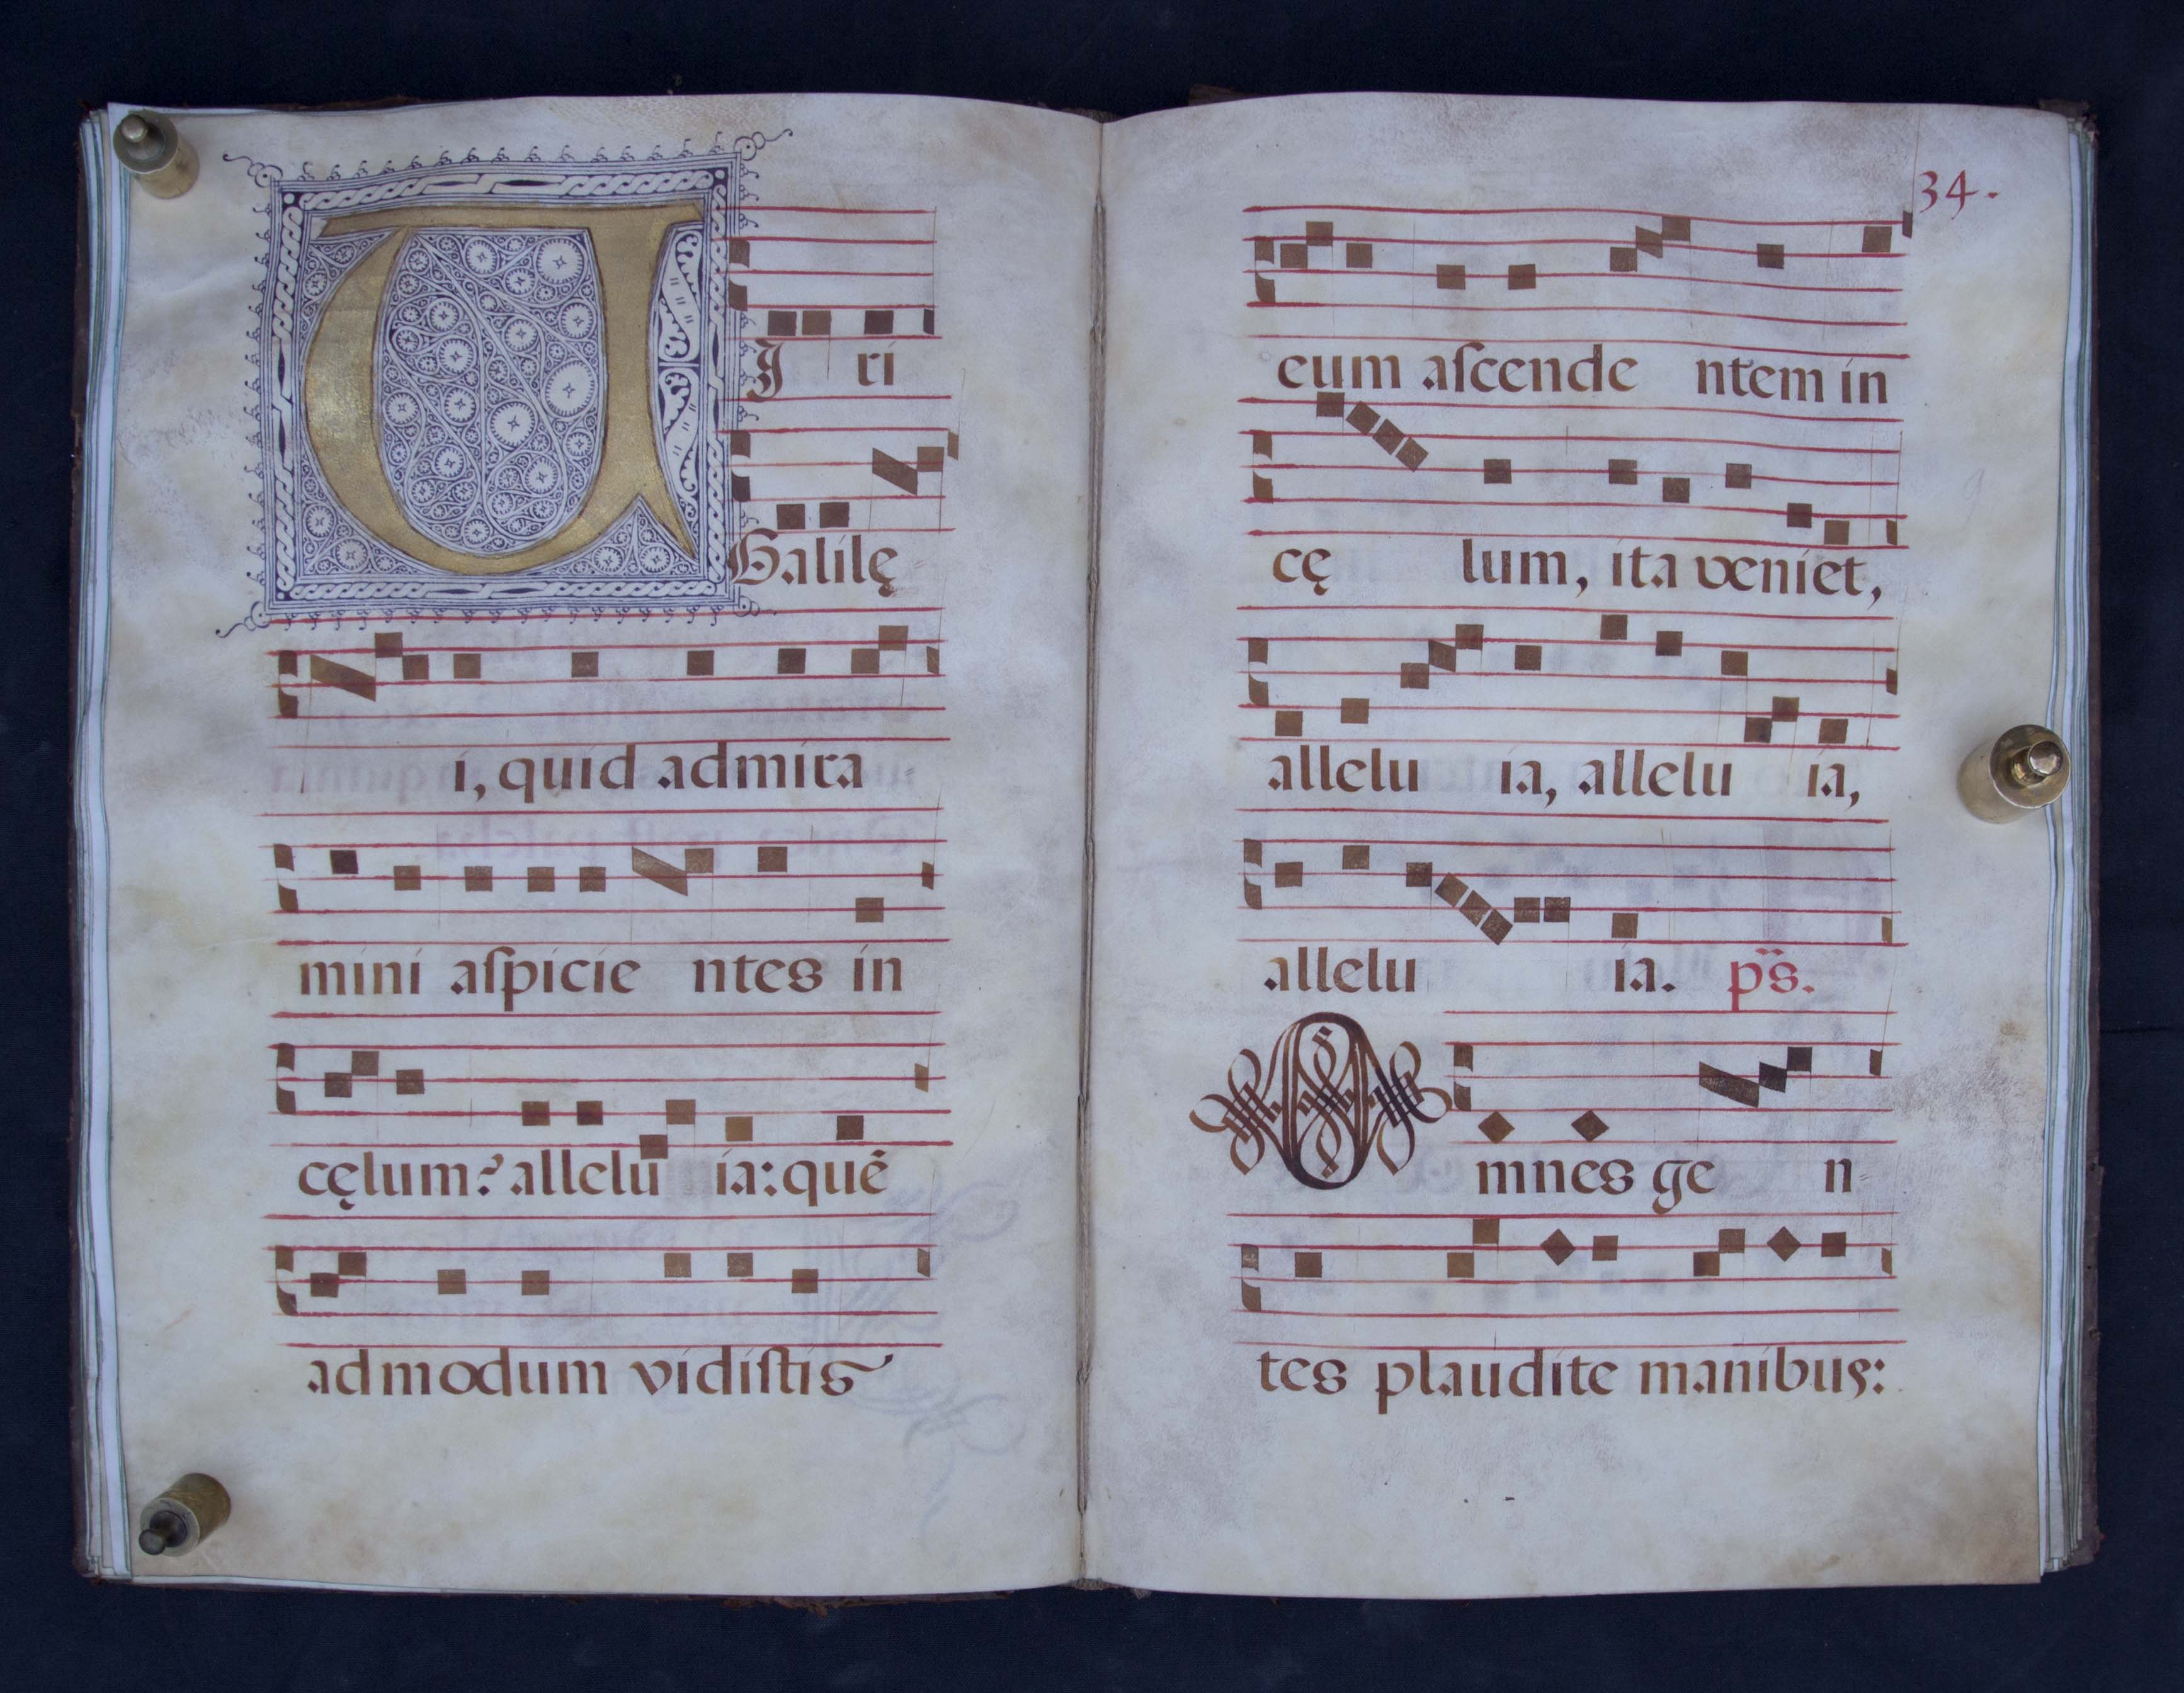 VJ ri
Galilę
i, quid admira⹀
mini aſpicie ntes in
cęlum? allelu ia: quē
admodum vidiſtis
34.
eum aſcende ntem in
cę lum, ita veniet,
allelu ia, allelu ia,
allelu ia. ps̈.
Omnes ge n⹀
tes plaudite manibus: